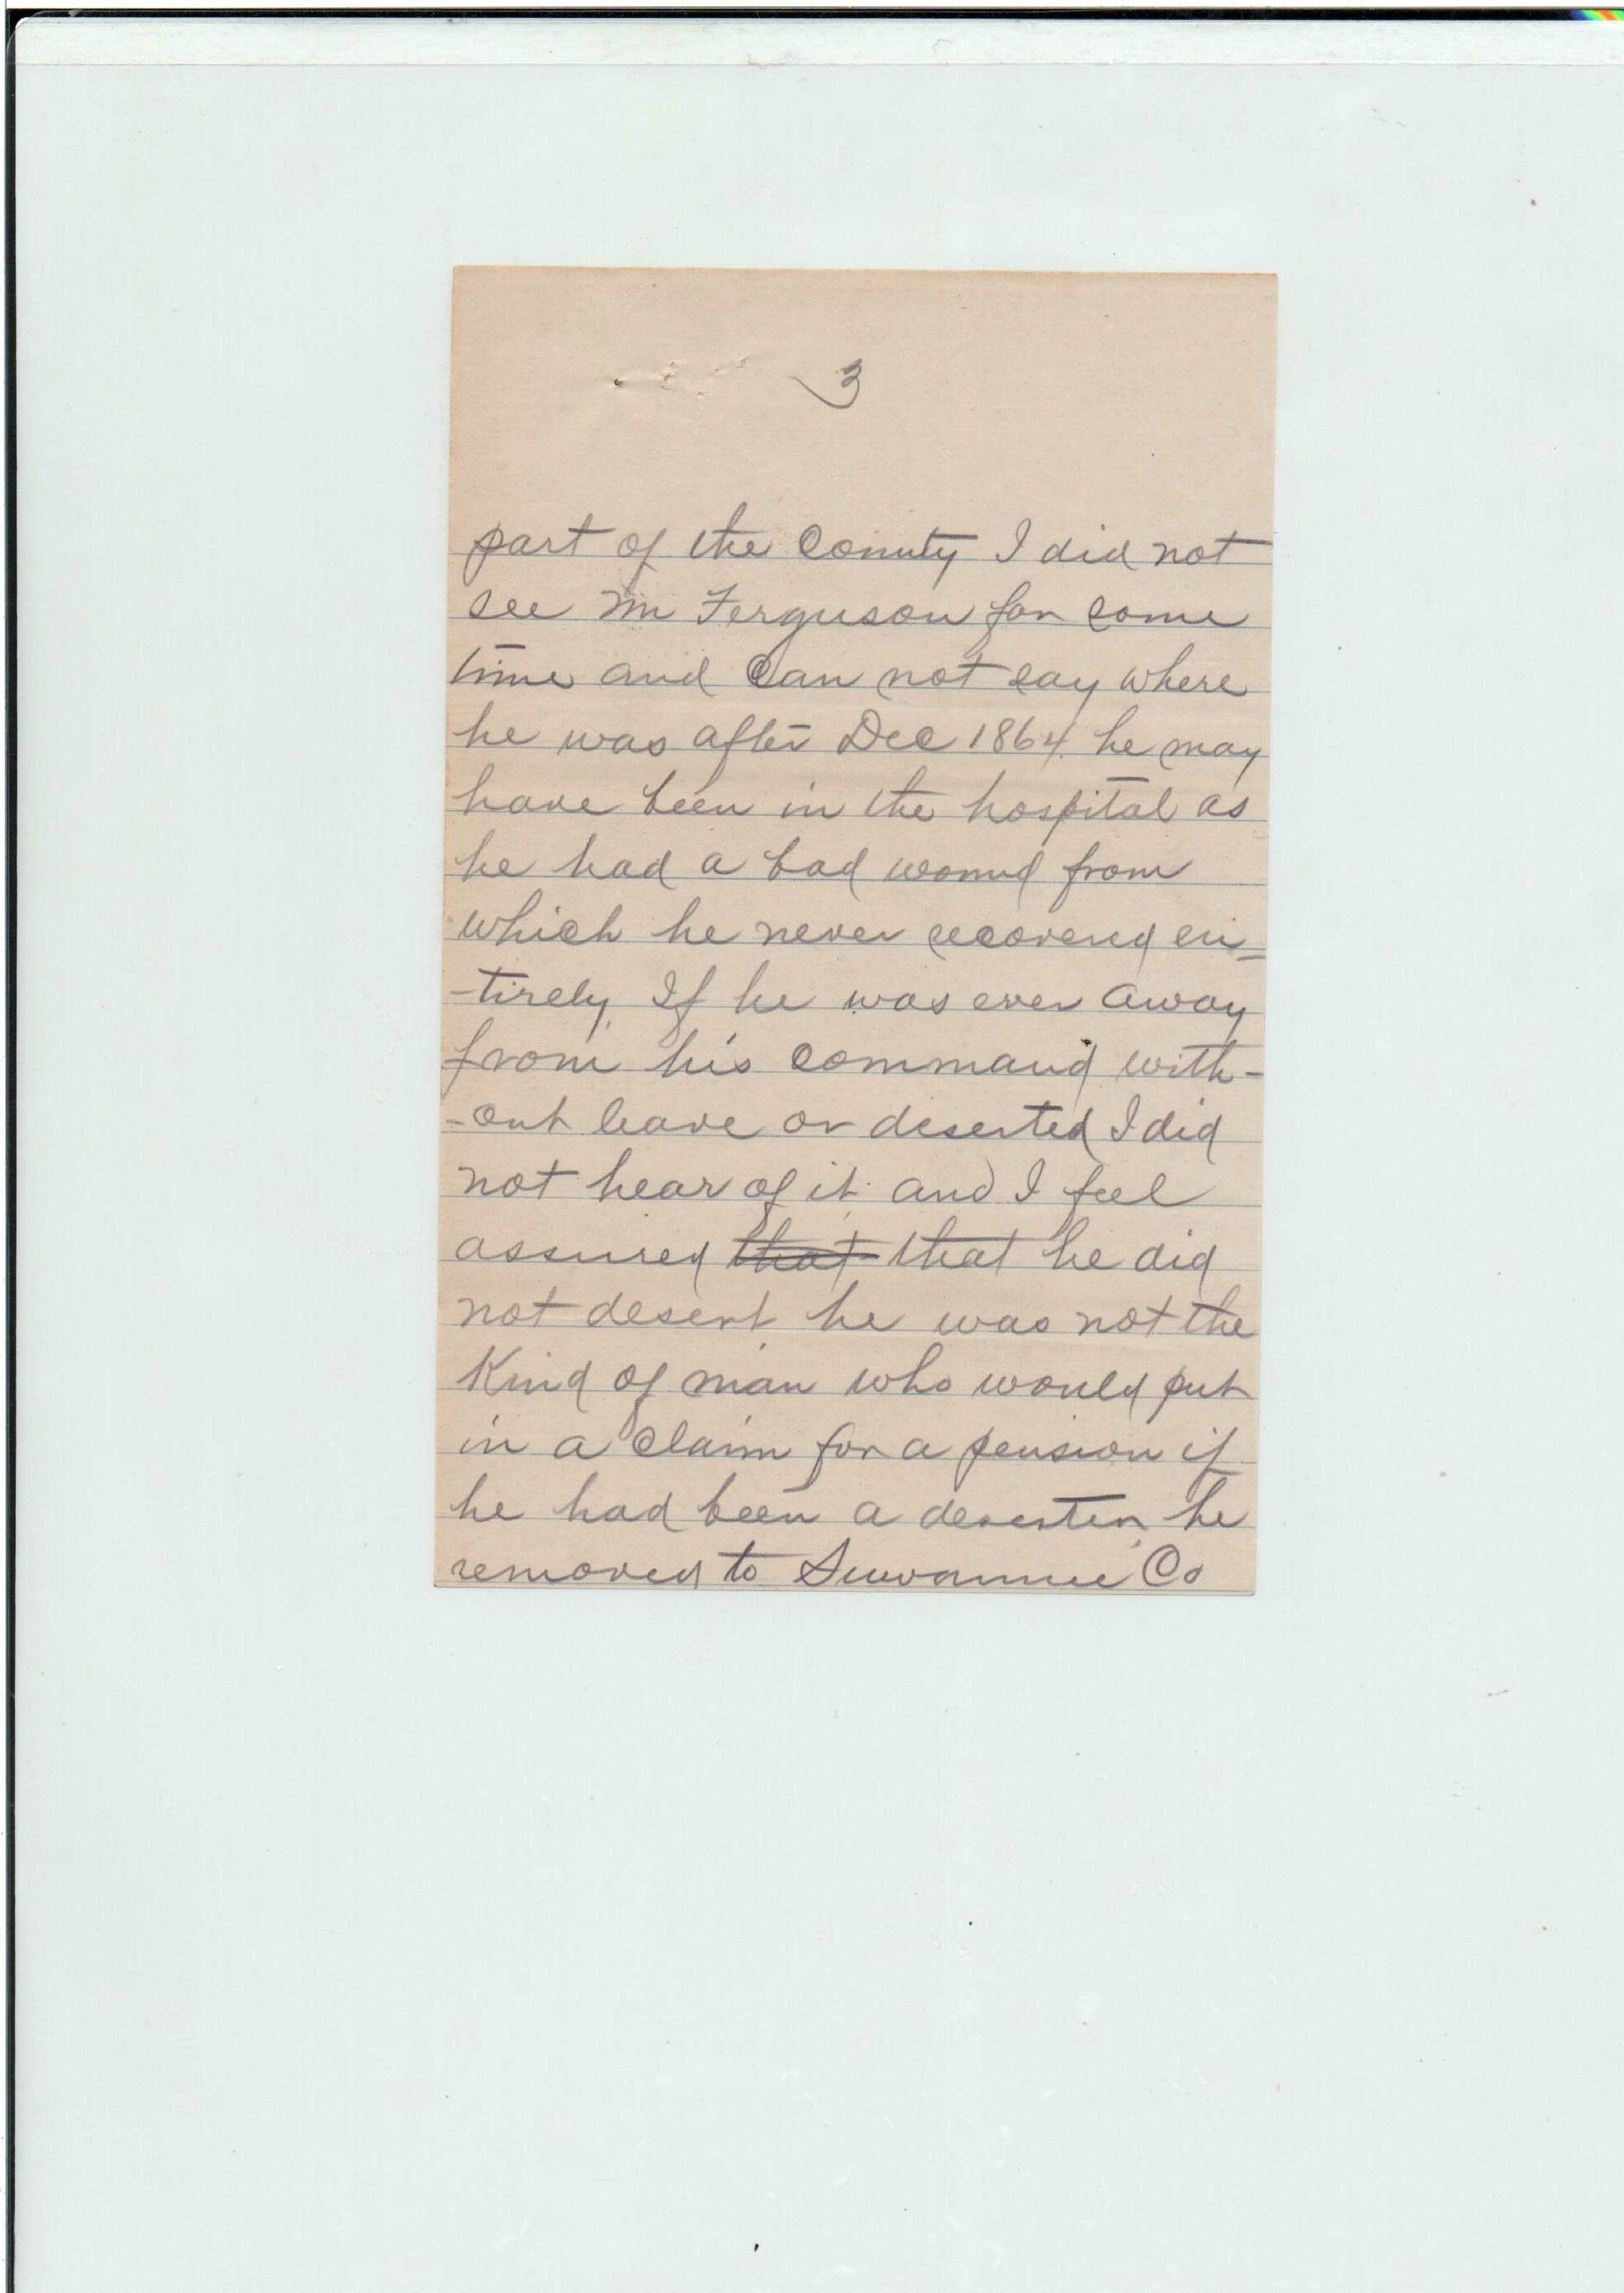 3
part of the County I did not
see Mr Ferguson for some
time and Can not say where
he was after Dec 1864. he may
have been in the hospital as
he had a bad wound from
which he never recovered en=
-tirely. If he was ever away
from his Command with-
-out leave or deserted I did
not hear of it. and I feel
assured that that he did
not desert, he was not the
Kind of man who would put
in a Claim for a pension if
he had been a deserter, he
removed to Suwannee Co